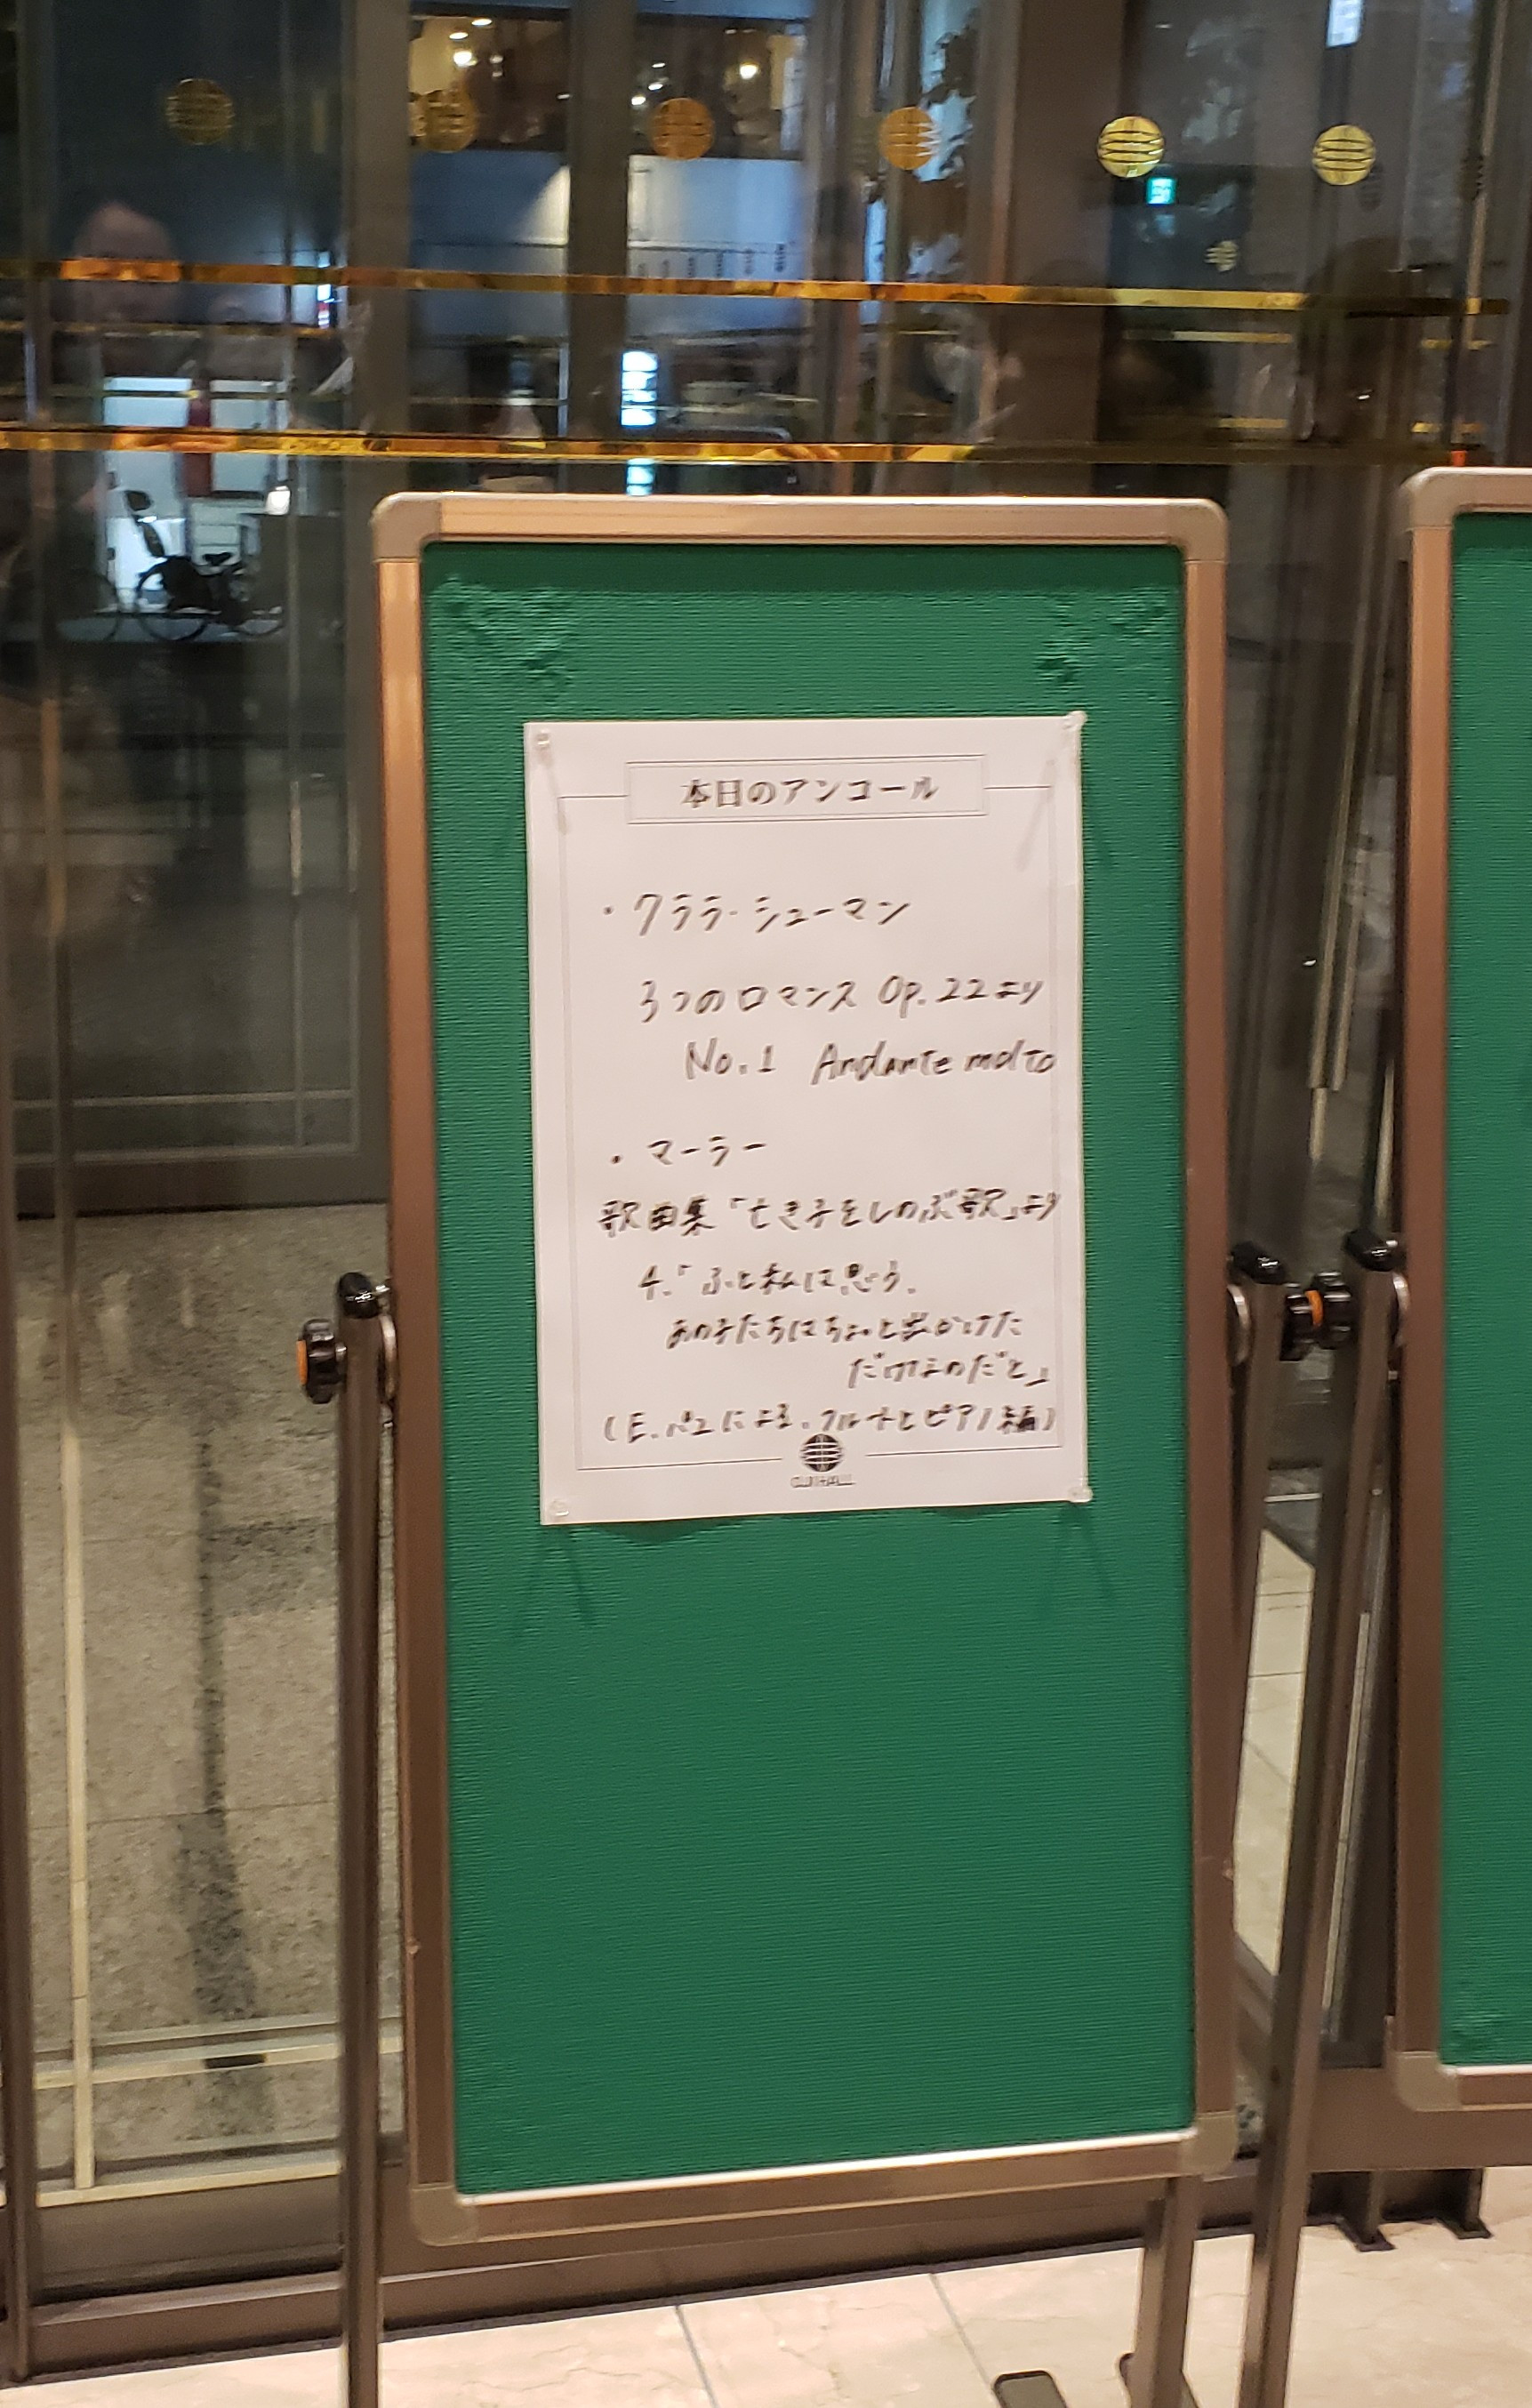 本日のアンコール
・クララ・シューマン
3つのロマンス Op.22より
No.1 Andante molto
・マーラー
歌曲集「亡き子をしのぶ歌」より
4.「ふと私は思う、
あの子たちはちょっと出かけた
だけなのだと」
(E.パユによる、フルートとピアノ編)